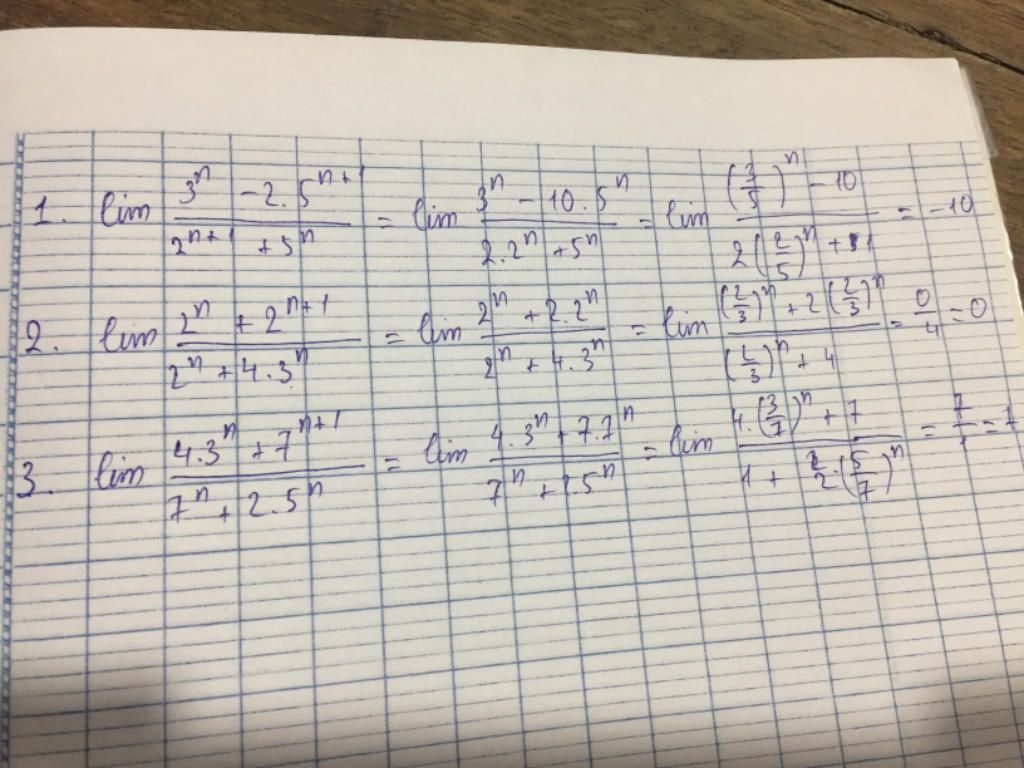 1. lim (3^n - 2.5^(n+1))/(2^(n+1) + 5^n) = lim (3^n - 10.5^n)/(2.2^n + 5^n) = lim ((3/5)^n - 10)/(2(2/5)^n + 1) = -10
2. lim (2^n + 2^(n+1))/(2^n + 4.3^n) = lim (2^n + 2.2^n)/(2^n + 4.3^n) = lim ((2/3)^n + 2(2/3)^n)/((2/3)^n + 4) = 0/4 = 0
3. lim (4.3^n + 7^(n+1))/(7^n + 2.5^n) = lim (4.3^n + 7.7^n)/(7^n + 2.5^n) = lim (4.(3/7)^n + 7)/(1 + 2.(5/7)^n) = 7/1 = 7